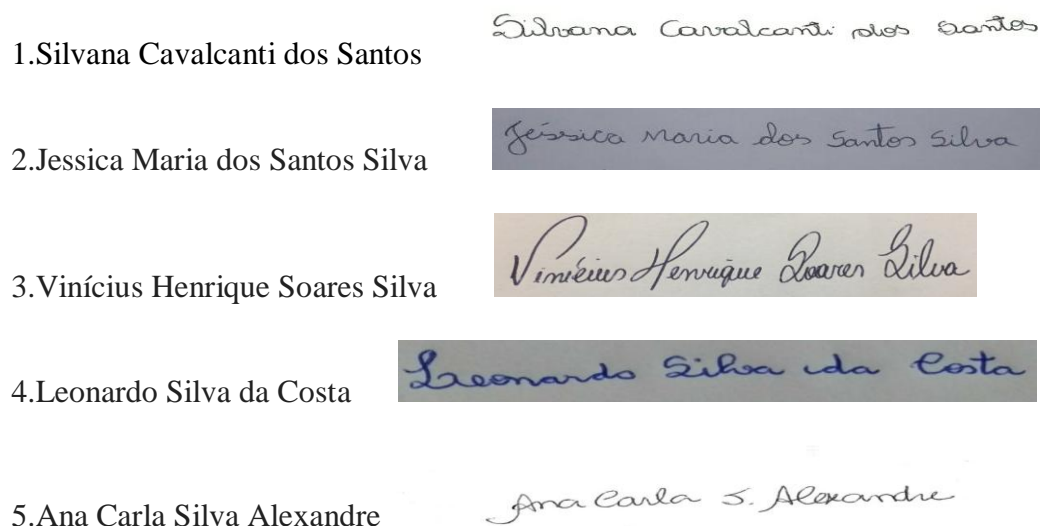 1.Silvana Cavalcanti dos Santos Silvana Cavalcanti dos Santos
2.Jessica Maria dos Santos Silva Jéssica Maria dos Santos Silva
3.Vinícius Henrique Soares Silva Vinícius Henrique Soares Silva
4.Leonardo Silva da Costa Leonardo Silva da Costa
5.Ana Carla Silva Alexandre Ana Carla S. Alexandre